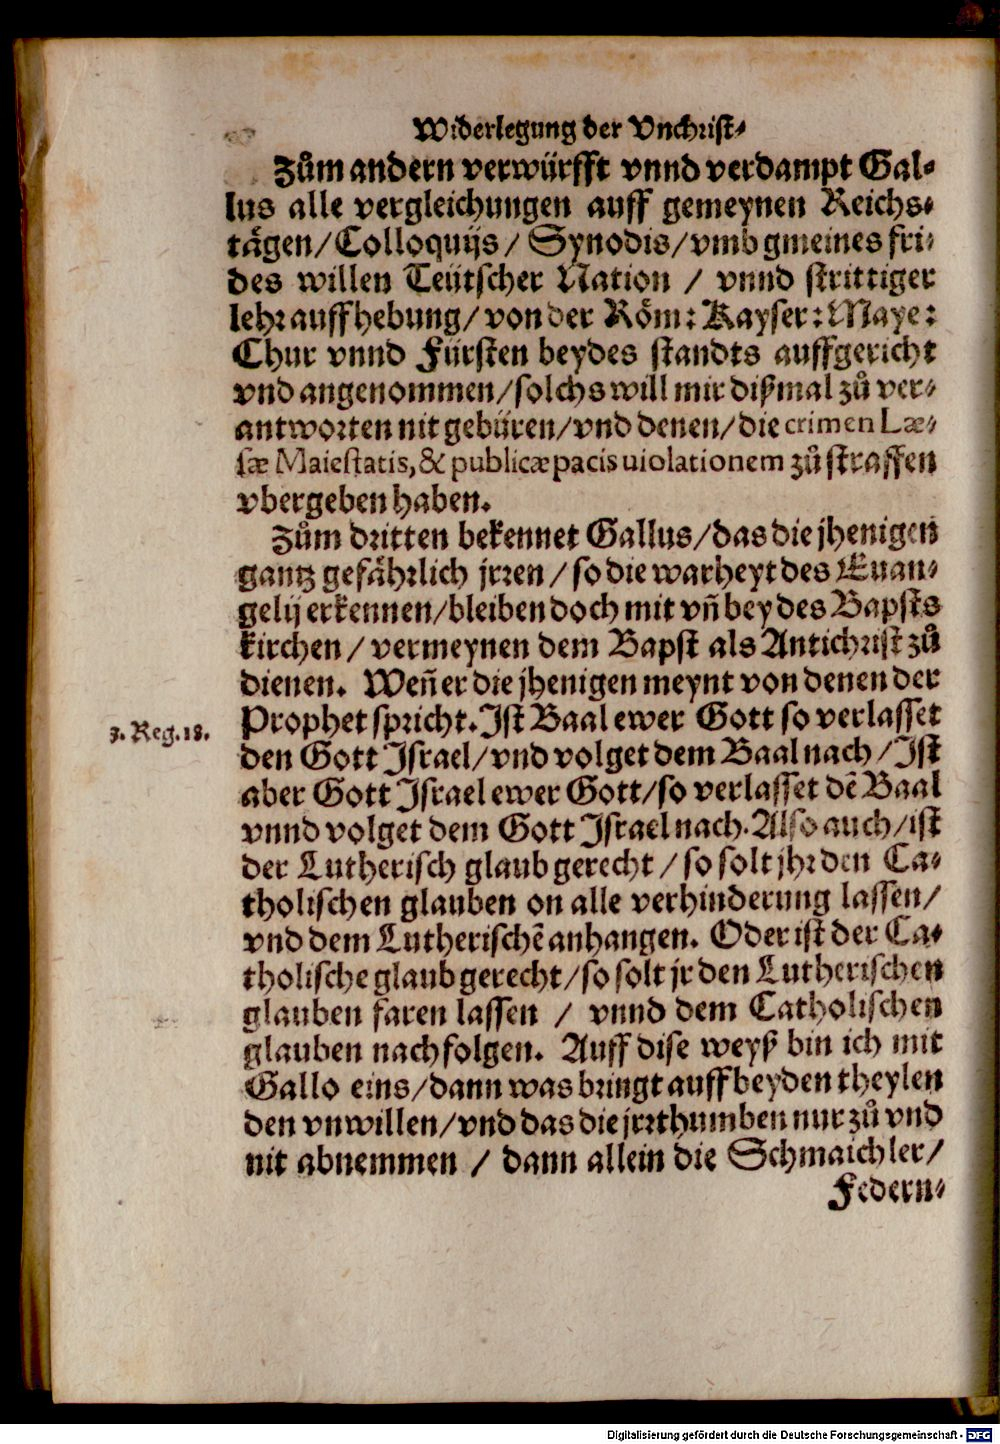 Widerlegung der Vnchrist⸗
Zům andern verwürfft vnnd verdampt Gal⸗
lus alle vergleichungen auff gemeynen Reichs⸗
tägen/Colloquijs/ Synodis/vmb gmeines fri⸗
des willen Teütscher Nation / vnnd strittiger
lehr auffhebung/von der Röm: Kayser: Maye:
Chur vnnd Fürsten beydes standts auffgericht
vnd angenommen/solchs will mir dißmal zů ver⸗
antworten nit gebüren/vnd denen/die crimen Læ⸗
sæ Maiestatis, & publicæ pacis uiolationem zů straffen
vbergeben haben.
Zům dritten bekennet Gallus/das die jhenigen
gantz gefährlich jrren/so die warheyt des Euan⸗
gelij erkennen/bleiben doch mit vñ bey des Bapsts
kirchen/vermeynen dem Bapst als Antichrist zů
dienen. Weñ er die jhenigen meynt von denen der
3. Reg. 18. Prophet spricht. Ist Baal ewer Gott so verlasset
den Gott Israel/vnd volget dem Baal nach/Ist
aber Gott Israel ewer Gott/so verlasset dẽ Baal
vnnd volget dem Gott Israel nach. Also auch/ist
der Lutherisch glaub gerecht/so solt jhr den Ca⸗
tholischen glauben on alle verhinderung lassen/
vnd dem Lutherischẽ anhangen. Oder ist der Ca⸗
tholische glaub gerecht/so solt jr den Lutherischen
glauben faren lassen / vnnd dem Catholischen
glauben nachfolgen. Auff dise weyß bin ich mit
Gallo eins/dann was bringt auff beyden theylen
den vnwillen/vnd das die jrrthumben nur zů vnd
nit abnemmen / dann allein die Schmaichler/
Federn⸗
Digitalisierung gefördert durch die Deutsche Forschungsgemeinschaft - DFG